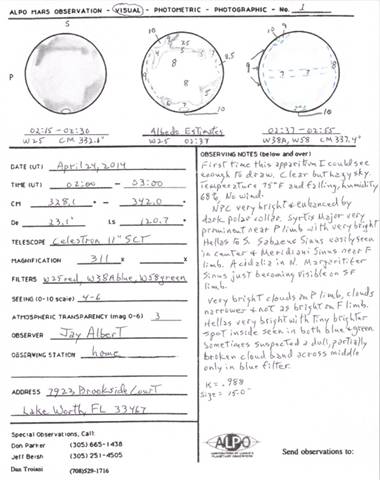 ALPO MARS OBSERVATION - VISUAL - PHOTOMETRIC - PHOTOGRAPHIC - No. 1
S
P
02:15 - 02:30
W25 CM 332.1°
Albedo Estimates
W25 02:37
02:37 - 02:55
W38A, W58 CM 337.4°
DATE (UT) April 24, 2014
TIME (UT) 02:00 - 03:00
CM 328.1° - 342.0°
De 23.1° Ls 120.7°
TELESCOPE Celestron 11" SCT
MAGNIFICATION 311 x x
FILTERS W25red, W38Ablue, W58green
SEEING (0-10 scale) 4-6
ATMOSPHERIC TRANSPARENCY (mag 0-6) 3
OBSERVER Jay Albert
OBSERVING STATION home
ADDRESS 7923 Brookside Court
Lake Worth, FL 33467
OBSERVING NOTES (below and over):
First time this apparition I could see
enough to draw. Clear but hazy sky
Temperature 75°F and falling, humidity
68%, No wind.
NPC very bright & enhanced by
dark polar collar. Syrtis Major very
prominent near P limb with very bright
Hellas to S. Sabaeus Sinus easily seen
in center & Meridiani Sinus near F
limb. Acidalia in N. Margaritifer
Sinus just becoming visible on SF
limb.
Very bright clouds on P limb, clouds
narrower & not as bright on F limb.
Hellas very bright with tiny brighter
spot inside seen in both blue & green
Sometimes suspected a dull, partially
broken cloud band across middle
only in blue filter.
K = .988
Size = 15.0"
Special Observations, Call:
Don Parker (305) 665-1438
Jeff Beish (305) 251-4505
Dan Troiani (708)529-1716
ALPO
Send observations to: